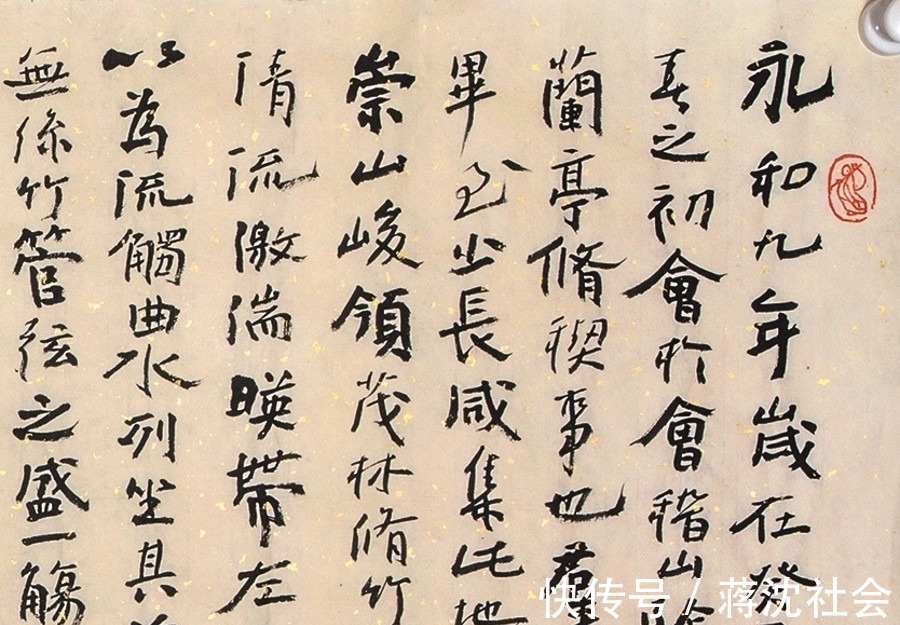 永和九年歲在癸
春之初會於會稽山
蘭亭脩稧事也羣
畢至少長咸集此地
崇山峻領茂林脩竹
清流激湍暎帶左
以為流觴曲水列坐其
無絲竹管弦之盛一觴
快传号 / 蒋沈社会